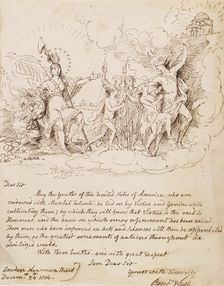 Dear Sir
May the youths of the United States of America, who are
endowed with Mental talents be led on by Virtue and Genius while
cultivating them; by which they will know that Virtue is the road to
Honours, and the basis on which every refinement has been raised.
Those men who have improved on both and Sciences will then be appreciated
by them, as the greatest ornaments of nations throughout the
civilized world.
With these limits and with great respect
I am Dear Sir
Yours with Sincerity
London Newman Street
Decem. 24. 1814.
Benj. West